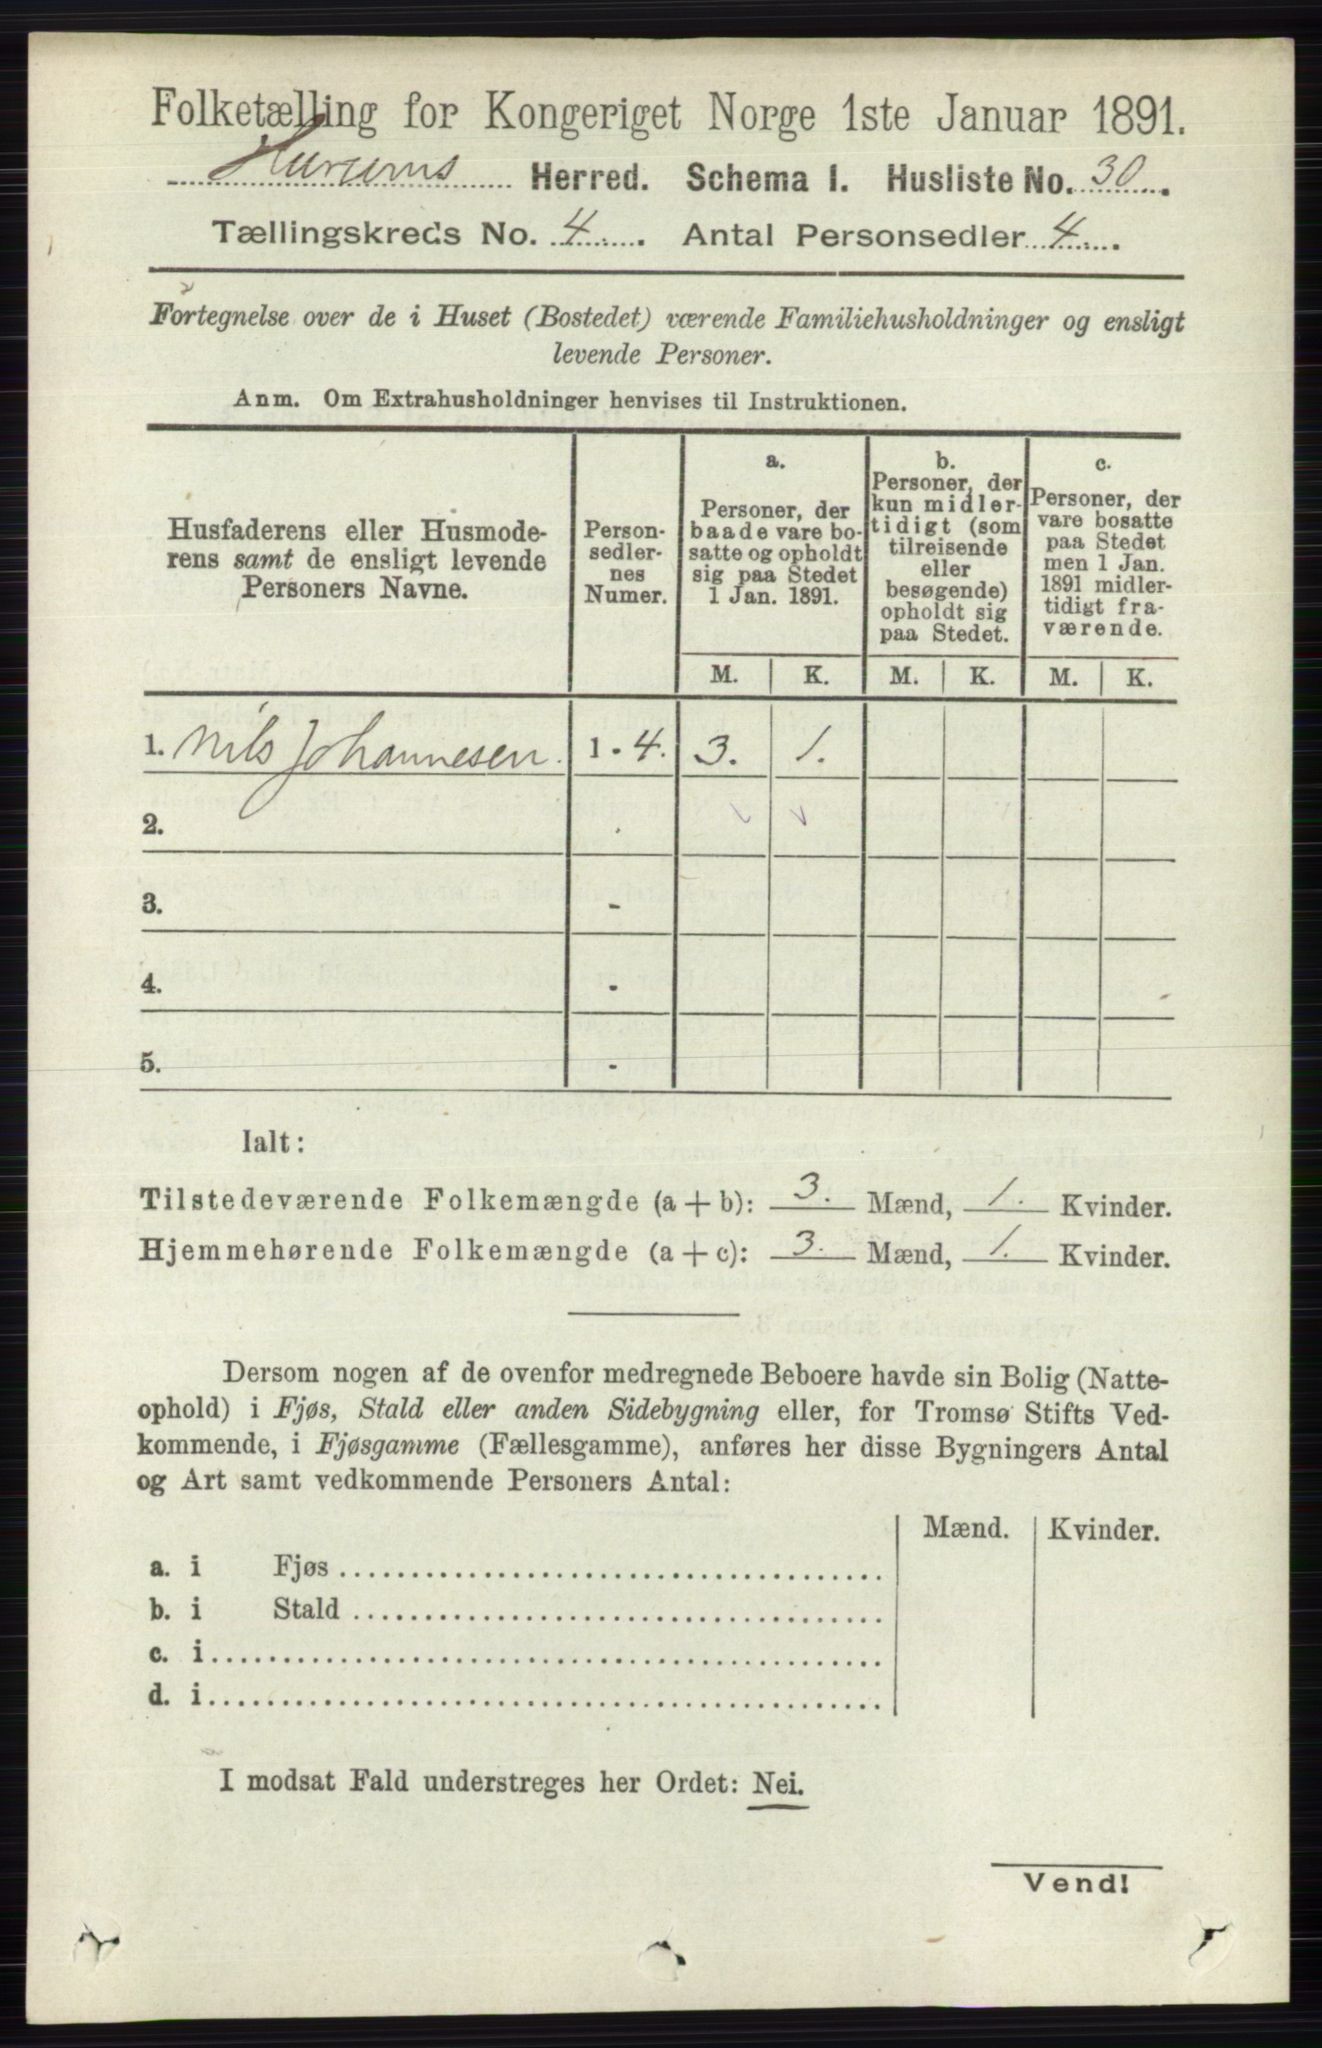 Folketælling for Kongeriget Norge 1ste Januar 1891.
Hurums Herred. Schema I. Husliste No. 30.
Tællingskreds No. 4. Antal Personsedler 4.
Fortegnelse over de i Huset (Bostedet) værende Familiehusholdninger og ensligt
levende Personer.
Anm. Om Extrahusholdninger henvises til Instruktionen.
Husfaderens eller Husmode-
rens samt de ensligt levende
Personers Navne.
Person-
sedler-
nes
Numer.
a.
Personer, der
baade vare bo-
satte og opholdt
sig paa Stedet
1 Jan. 1891.
b.
Personer, der
kun midler-
tidigt (som
tilreisende
eller
besøgende)
opholdt sig
paa Stedet.
c.
Personer, der
vare bosatte
paa Stedet
men 1 Jan.
1891 midler-
tidigt fra-
værende.
M. K. M. K. M. K.
1. Nils Johannesen. 1 - 4. 3. 1.
2.
3. -
4. -
5. -
Ialt:
Tilstedeværende Folkemængde (a + b): 3. Mænd, 1. Kvinder.
Hjemmehørende Folkemængde (a + c): 3. Mænd, 1. Kvinder.
Dersom nogen af de ovenfor medregnede Beboere havde sin Bolig (Natte-
ophold) i Fjøs, Stald eller anden Sidebygning eller, for Tromsø Stifts Ved-
kommende, i Fjøsgamme (Fællesgamme), anføres her disse Bygningers Antal
og Art samt vedkommende Personers Antal:
Mænd. Kvinder.
a. i Fjøs
b. i Stald
c. i
d. i
I modsat Fald understreges her Ordet: Nei.
Vend!